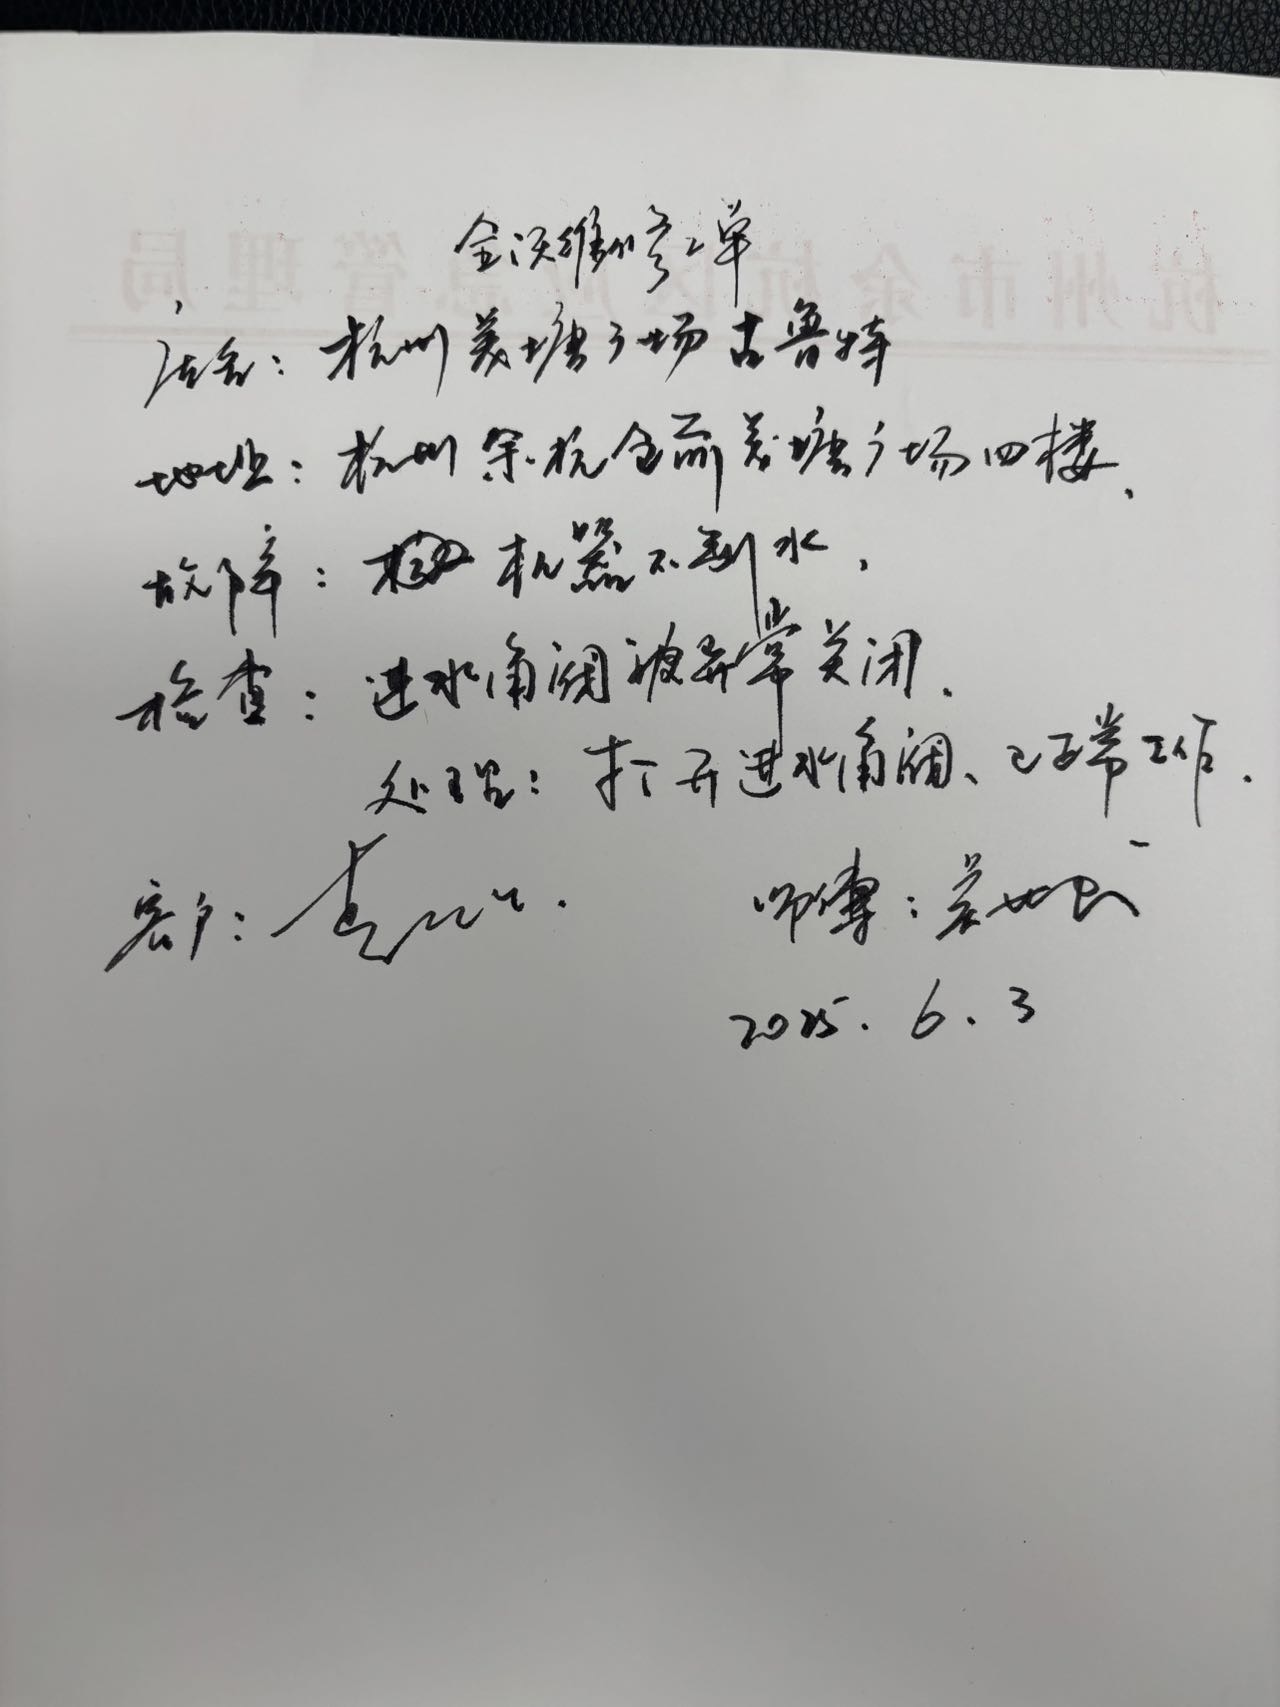 杭州市余杭区应急管理局
金汉维修单
店名：杭州美塘广场古鲁特
地址：杭州余杭金而美塘广场四楼、
故障：机器不制水，
检查：进水角阀被异常关闭、
处理：打开进水角阀、已正常工作.
客户： 师傅：
2025.6.3